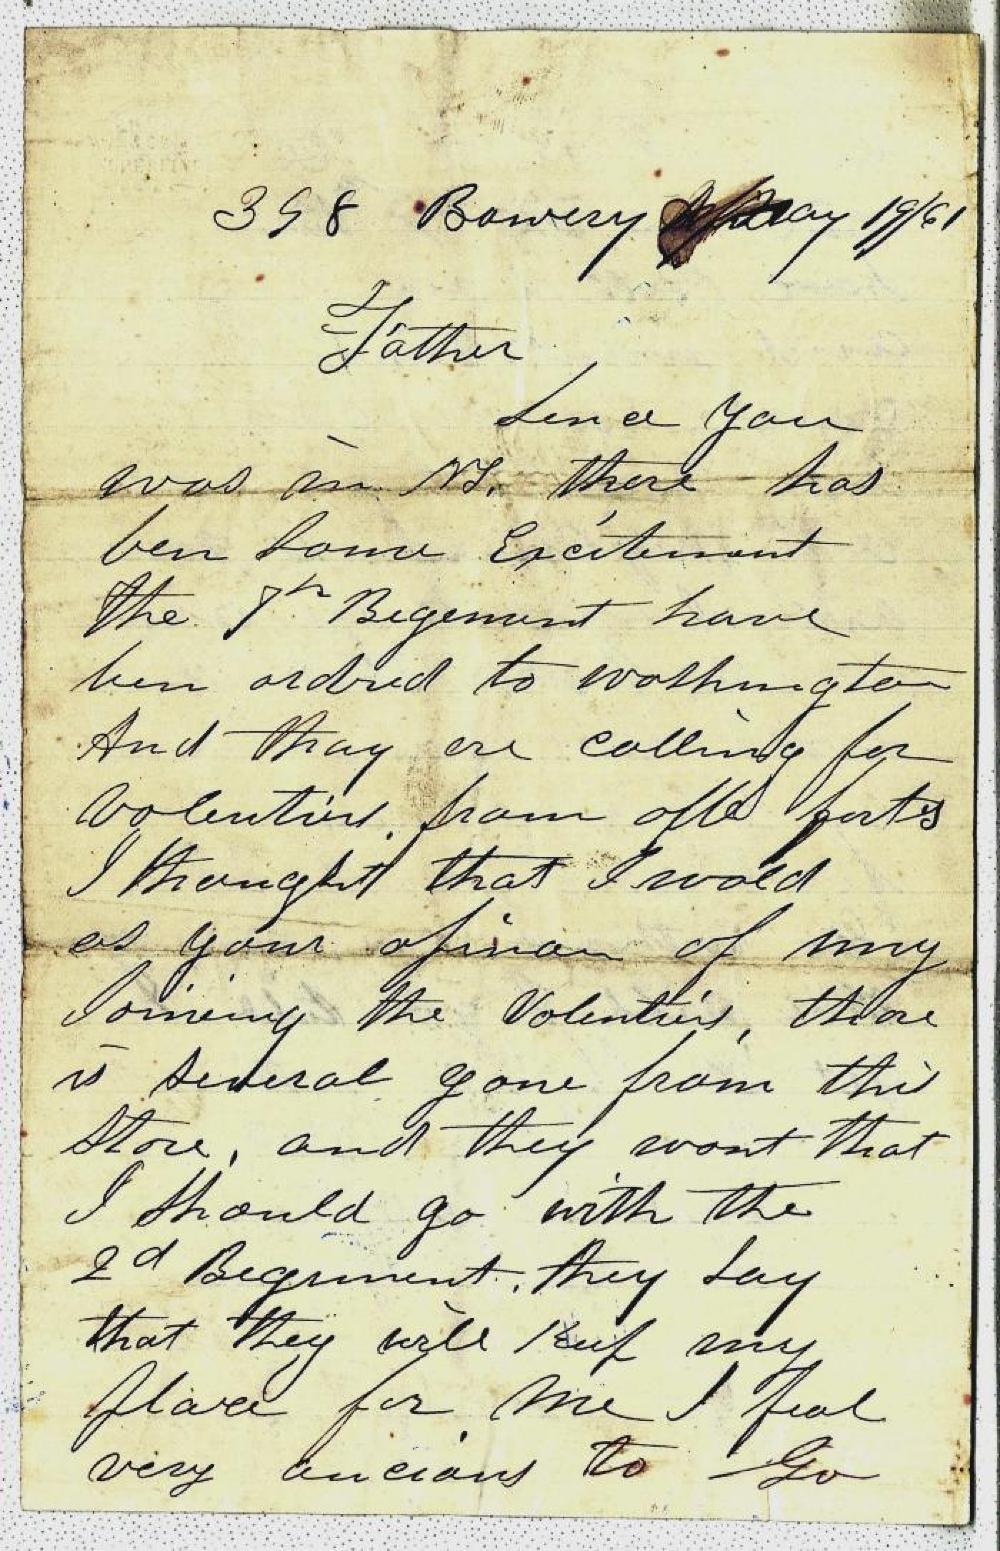 398 Bowery May 19/61
Father
Sence you
was in NY. there has
ben some Excitement
the 7th Regement have
ben ordred to washington
And thay are calling for
volentirs. from all parts
I thought that I wold
as your opinan of my
Joineing the Volentirs, thare
is several gone from this
store, and they want that
I should go with the
2d Regiment. they say
that they will keep my
place for me I feal
very ancious to Go